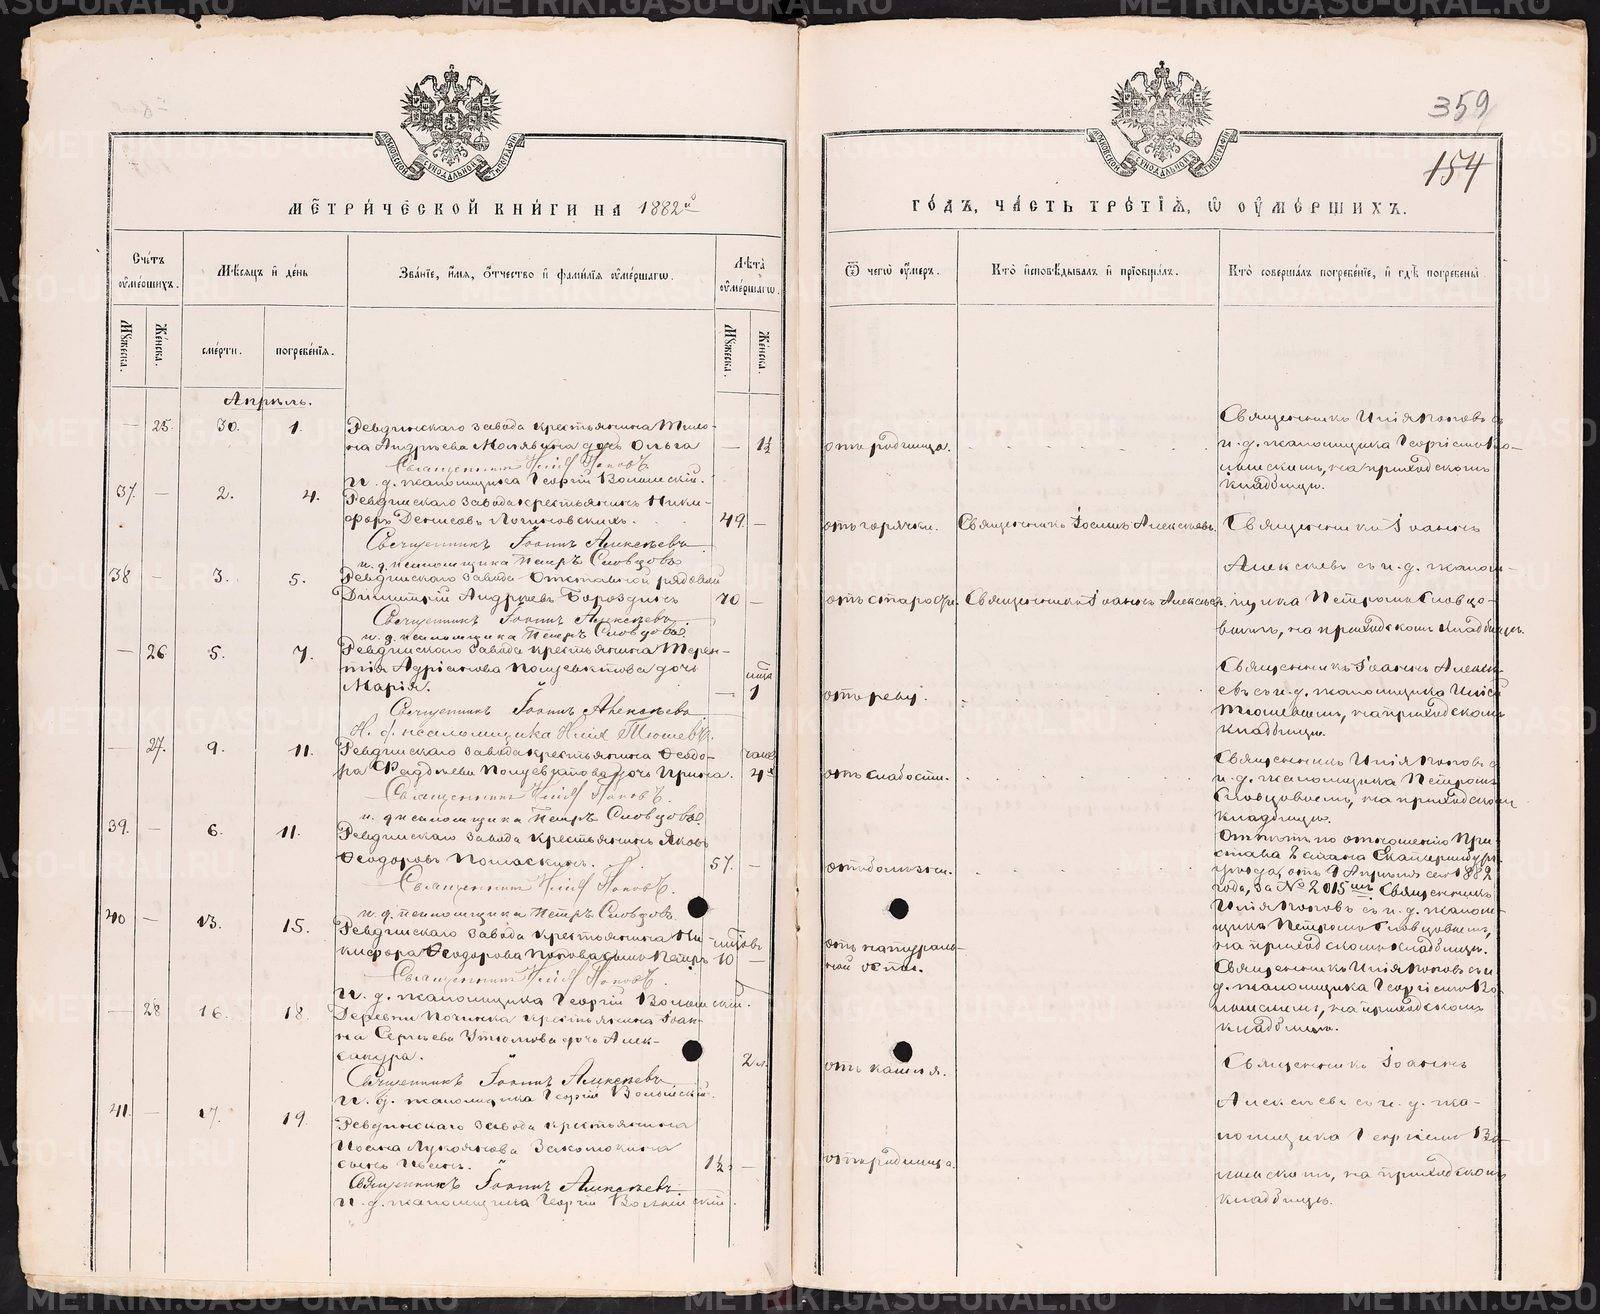 359
154
МОСКОВСКОЙ СѴНОДАЛЬНОЙ ТИПОГРАФІИ
МОСКОВСКОЙ СѴНОДАЛЬНОЙ ТИПОГРАФІИ
МЕТРИЧЕСКОЙ КНИГИ НА 1882й
ГОДЪ, ЧАСТЬ ТРЕТІЯ, Ѡ ОУМЕРШИХЪ.
Счетъ оумершихъ.
Мѣсяцъ и день
Званіе, имя, отчество и фамилія оумершагѡ.
Лѣта оумершагѡ.
Ѿ чегѡ оумеръ.
Кто исповѣдывалъ и пріобщалъ.
Кто совершалъ погребеніе, и гдѣ погребены.
Мужеска.
Женска.
смерти.
погребенія.
Мужеска.
Женска.
Апрѣль.
— 25. 30. 1. Ревдинскаго завода крестьянина
на Андрѣева дочь Ольга — 1½
Священникъ Илія Поповъ
И. д. псаломщика Георгій Волынскій.
отъ родимца.
Священникъ Илія Поповъ съ
и. д. псаломщика Георгіемъ Во-
лынскимъ, на приходскомъ
кладбищѣ.
37. — 2. 4. Ревдинскаго завода крестьянинъ Ники-
форъ Денисовъ Логиновскихъ. 49. —
Священникъ Іоаннъ Алексѣевъ
и. д. псаломщика Петръ Словцовъ
отъ горячки. Священникъ Іоаннъ Алексѣевъ.
Священникъ Іоаннъ
Алексѣевъ съ и. д. псалом-
щика Петромъ Словцо-
вымъ, на приходскомъ кладбищѣ.
38 — 3. 5. Ревдинскаго завода отставной рядовой
Димитрій Андреевъ Бороздинъ 70 —
Священникъ Іоаннъ Алексѣевъ
и. д. псаломщика Петръ Словцовъ
отъ старости. Священникъ Іоаннъ Алексѣевъ.
— 26 5. 7. Ревдинскаго завода крестьянина Терен-
тія Адріанова дочь
Марія. — 1
Священникъ Іоаннъ Алексѣевъ
И. д. псаломщика Илія Тюшевъ.
отъ реву.
Священникъ Іоаннъ Алексѣ-
евъ съ и. д. псаломщика Иліей
Тюшевымъ, на приходскомъ
кладбищѣ.
— 27. 9. 11. Ревдинскаго завода крестьянина Ѳеодо-
ра Фаддѣева дочь Ирина.
Священникъ Илія Поповъ.
и. д. псаломщика Петръ Словцовъ
отъ слабости.
Священникъ Илія Поповъ съ
и. д. псаломщика Петромъ
Словцовымъ, на приходскомъ
кладбищѣ.
39. — 6. 11. Ревдинскаго завода крестьянинъ Яковъ
Ѳеодоровъ 57. —
Священникъ Илія Поповъ.
и. д. псаломщика Петръ Словцовъ.
отъ болѣзни.
Отпѣтъ по отношенію При-
става 2 стана Екатеринбург.
уѣзда, отъ 7 Апрѣля сего 1882
года, за № 2015мъ Священникъ
Илія Поповъ съ и. д. псалом-
щика Петромъ Словцовымъ,
на приходскомъ кладбищѣ.
40 — 13. 15. Ревдинскаго завода крестьянина Ни-
кифора Ѳеодорова Попова сынъ Петръ 10 —
Священникъ Илія Поповъ.
И. д. псаломщика Георгій Волынскій.
отъ натураль-
ной оспы.
Священникъ Илія Поповъ съ и.
д. псаломщика Георгіемъ Во-
лынскимъ, на приходскомъ
кладбищѣ.
— 28 16. 18. Деревни Починка крестьянина Іоан-
на Сергѣева Утюмова дочь Алек-
сандра. 2 л.
Священникъ Іоаннъ Алексѣевъ
И. д. псаломщика Георгій Волынскій.
отъ кашля.
Священникъ Іоаннъ
Алексѣевъ съ и. д. пса-
ломщика Георгіемъ Во-
лынскимъ, на приходскомъ
кладбищѣ.
41. — 17. 19. Ревдинскаго завода крестьянина
сынъ 1½ —
Священникъ Іоаннъ Алексѣевъ
И. д. псаломщика Георгій Волынскій.
отъ родимца.
METRIKI.GASO-URAL.RU